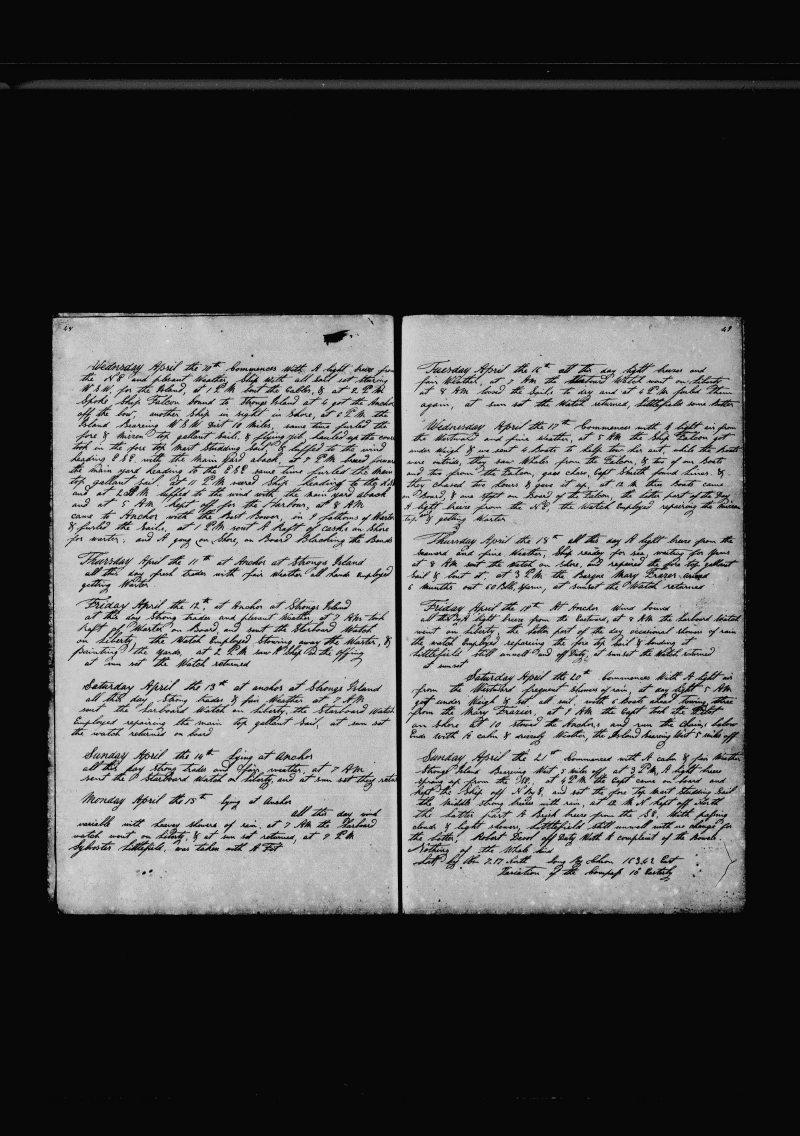 48
Wednesday April the 10th Commences with A light breeze from
the N.E and pleasant Weather, Ship with all sail set Steering
W.S.W. for the Island, at 1 P.M. bent the Cables, & at 2 P.M.
Spoke Ship Falcon bound to Strongs Island at 4 got the Anchor
off the bow, another Ship in sight in Shore, at 6 P.M. the
Island Bearing W.S.W Dist 10 Miles, same time furled the
fore & mizen top gallant Sails, & flying jib, hauled up the
took in the fore top Mast Studding Sail, & luffed to the wind
heading with the Main Yard aback, at 7 P.M. braced
the main yard heading to the E.S.E same time furled the Main
top gallant Sail. at 11 P.M wared Ship heading to the
and at 2 A.M luffed to the wind with the main yard aback
and at 5 A.M. kept off for the Harbour, at 8 A.M
came to Anchor with the Best Bower, in 9 fathoms of Warter
& furled the Sails, at 1 P.M sent A Raft of casks on Shore
for warter, and A gang on Shore, on Board Blacking the Bends
Thursday April the 11th at Anchor at Strongs Island
all this day fresh trades with fair Weather all hands employed
getting Warter
Friday April the 12th, at Anchor at Strongs Island
at this day Strong trades and pleasant Weather, at 7 AM took
Raft of Warter on Board, and sent the Starboard Watch
on Liberty, the Watch Employed Stowing away the Warter, &
painting the yards, at 2 P.M saw A Ship in the Offing
at sun set the Watch returned
Saturday April the 13th at anchor at Strongs Island
all this day Strong trades & fair Weather at 7 A.M.
sent the Larboard Watch on Liberty, the Starboard Watch
Employed repairing the main top gallant Sail, at sun set
the watch returned on board
Sunday April the 14th lying at Anchor
all this day Strong trades and fair weather, at 7 AM
sent the Starboard Watch on Liberty, and at sun set they
Monday April the 15th lying at Anchor
all this day wind
variable with heavy showers of rain, at 7 AM the Larboard
watch went on Liberty, & at sun set returned, at 7 P.M
Sylvester Littlefield, was taken with A Fit
49
Tuesday April the 16th all this day light breezes and
fair Weather, at 7 AM the Starboard Watch went on Liberty
at 8 AM loosed the Sails to dry and at 4 P.M furled them
again, at sun set the Watch returned, Littlefield some better
Wednesday April the 17th Commences with A light air from
the Westward and fine weather, at 5 AM the Ship Falcon got
under Weigh & we sent 4 Boats to help tow her out, while the Boats
were outside they saw Whales from the Falcon, & two of our Boats
and two from the Falcon, gave chase, Capt Smith found lines &
they chased two hours & gave it up, at 12 M two Boats came
on Board, & one stopt on Board of the Falcon, the latter part of the Day
A light breeze from the N.E, the Watch Employed repairing the mizen
top & getting Warter
Thursday April the 18th all this day A light breeze from the
Seaward and fine Weather, Ship ready for sea, waiting for
at 8 AM sent the Watch on Shore, and repaired the fore top gallant
Sail & bent it, at 3 P.M the Barque Mary Frazer arrived
6 Months out 60 Bbls, Sperm, at sunset the Watch returned
Friday April the 19th At Anchor Wind bound
all this day A light breeze from the Eastward, at 8 AM the Larboard Watch
went on Liberty, the latter part of the day occasional showers of rain
the watch Employed repairing the fore top Sail & bending it
Littlefield still unwell and off Duty, at sunset the Watch returned
at sunset
Saturday April the 20th Commences With A light air
from the Westward frequent showers of rain, at day light 5 AM
got under Weigh & set all sail, with 6 boats ahead towing three
from the Mary Frazier, at 7 AM the Capt took the Pilot
on Shore At 10 stowed the Anchors and run the chains below
Ends with A calm & drisely Weather, the Island bearing West 5 mile off
Sunday April the 21st Commences with A calm & fair Weather
Strongs Island Bearing West 5 miles off at 3 P.M, A light breeze
Sprung up from the NE. at 4 P.M the Capt came on board and
kept the Ship off N by E. and set the fore top Mast Studding Sail
the Middle strong breeze with rain, at 12 M.N kept off North
the latter part A Brisk breeze from the S.E. With passing
clouds & light showers, Littlefield still unwell with no change for
the better, Robert off Duty With A complaint of the Bowels
Nothing of the Whale kind
Latt by Obs 7.17 North Long by Chron 163.42 East
Variation of the Compass 10° Easterly